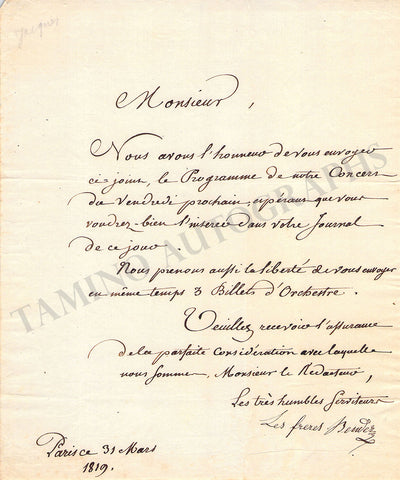 Jacques
Monsieur,
Nous avons l'honneur de vous envoyer
ci-joint, le Programme de notre Concert
du Vendredi prochain, espérans que vous
voudrez-bien l'inserer dans votre Journal
de ce jour.
Nous prenons aussi la liberté de vous envoyer
en même temps 3 Billets d'Orchestre.
Veuillez recevoir l'assurance
de la parfaite Considération avec laquelle
nous sommes, Monsieur le Redacteur,
Les très humbles Serviteurs
Les freres Bender
Paris ce 31 Mars
1819.
TAMINO AUTOGRAPHS